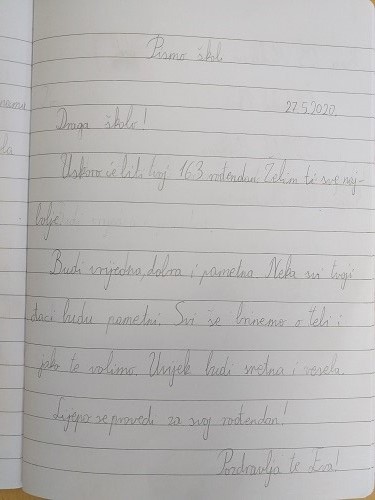 Pismo školi
27.5.2020.
Draga školo!
Uskoro će biti tvoj 163 rođendan. Želim ti sve naj-
bolje.
Budi vrijedna, dobra i pametna. Neka svi tvoji
đaci budu pametni. Svi se brinemo o tebi i
jako te volimo. Uvijek budi sretna i vesela.
Lijepo se provedi za svoj rođendan!
Pozdravlja te Eva!